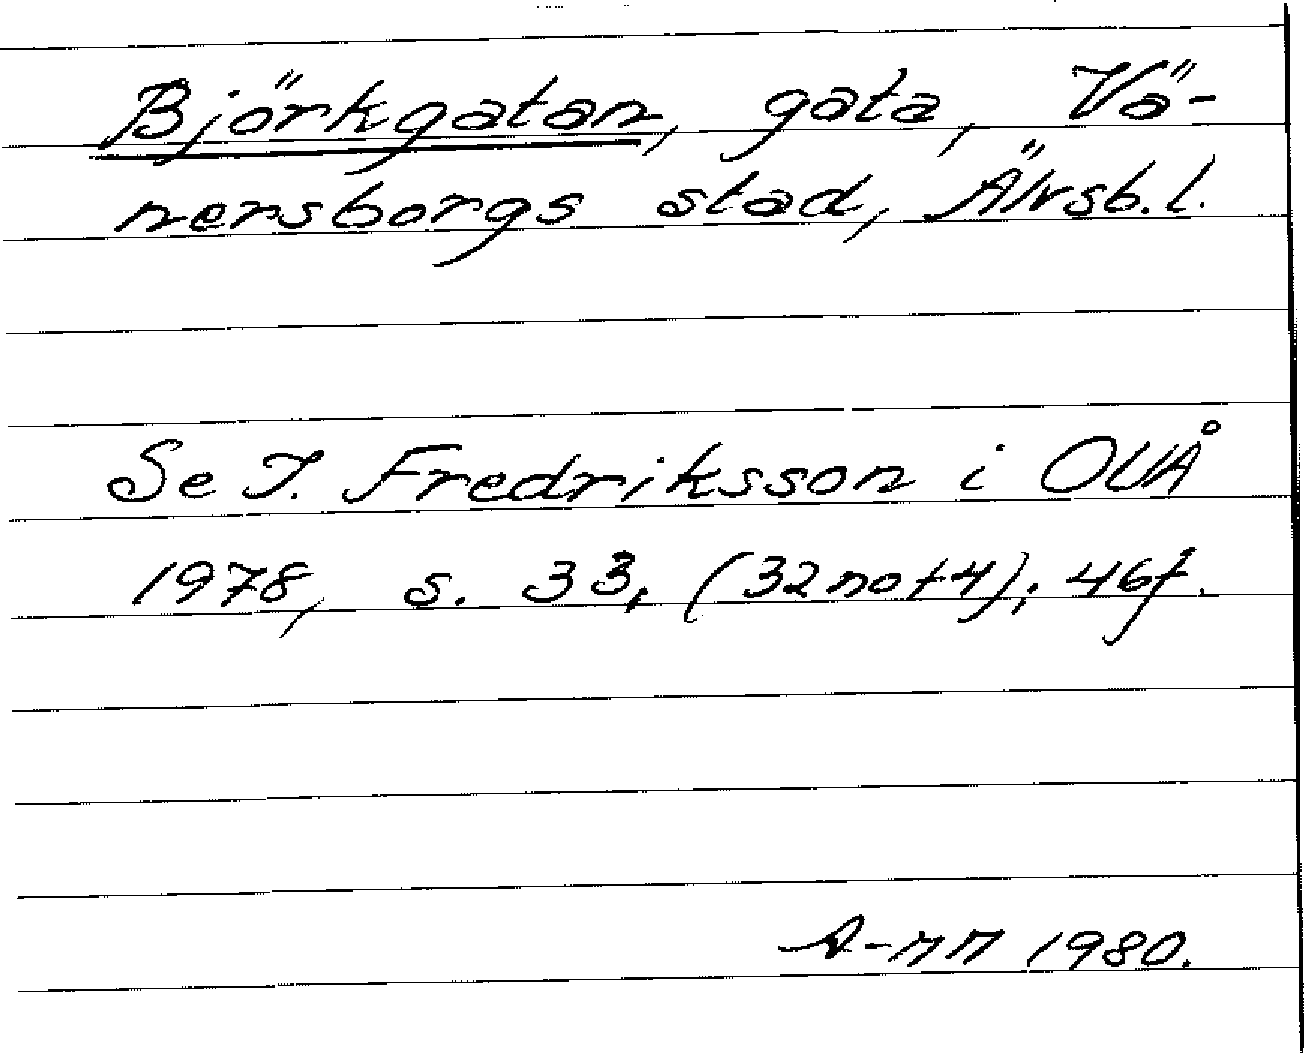 Björkgatan, gata, Vä-
nersborgs stad, Älvsb.l.
Se I. Fredriksson i OUÅ
1978, s. 33, (32 not 4); 46f.
A-nn 1980.